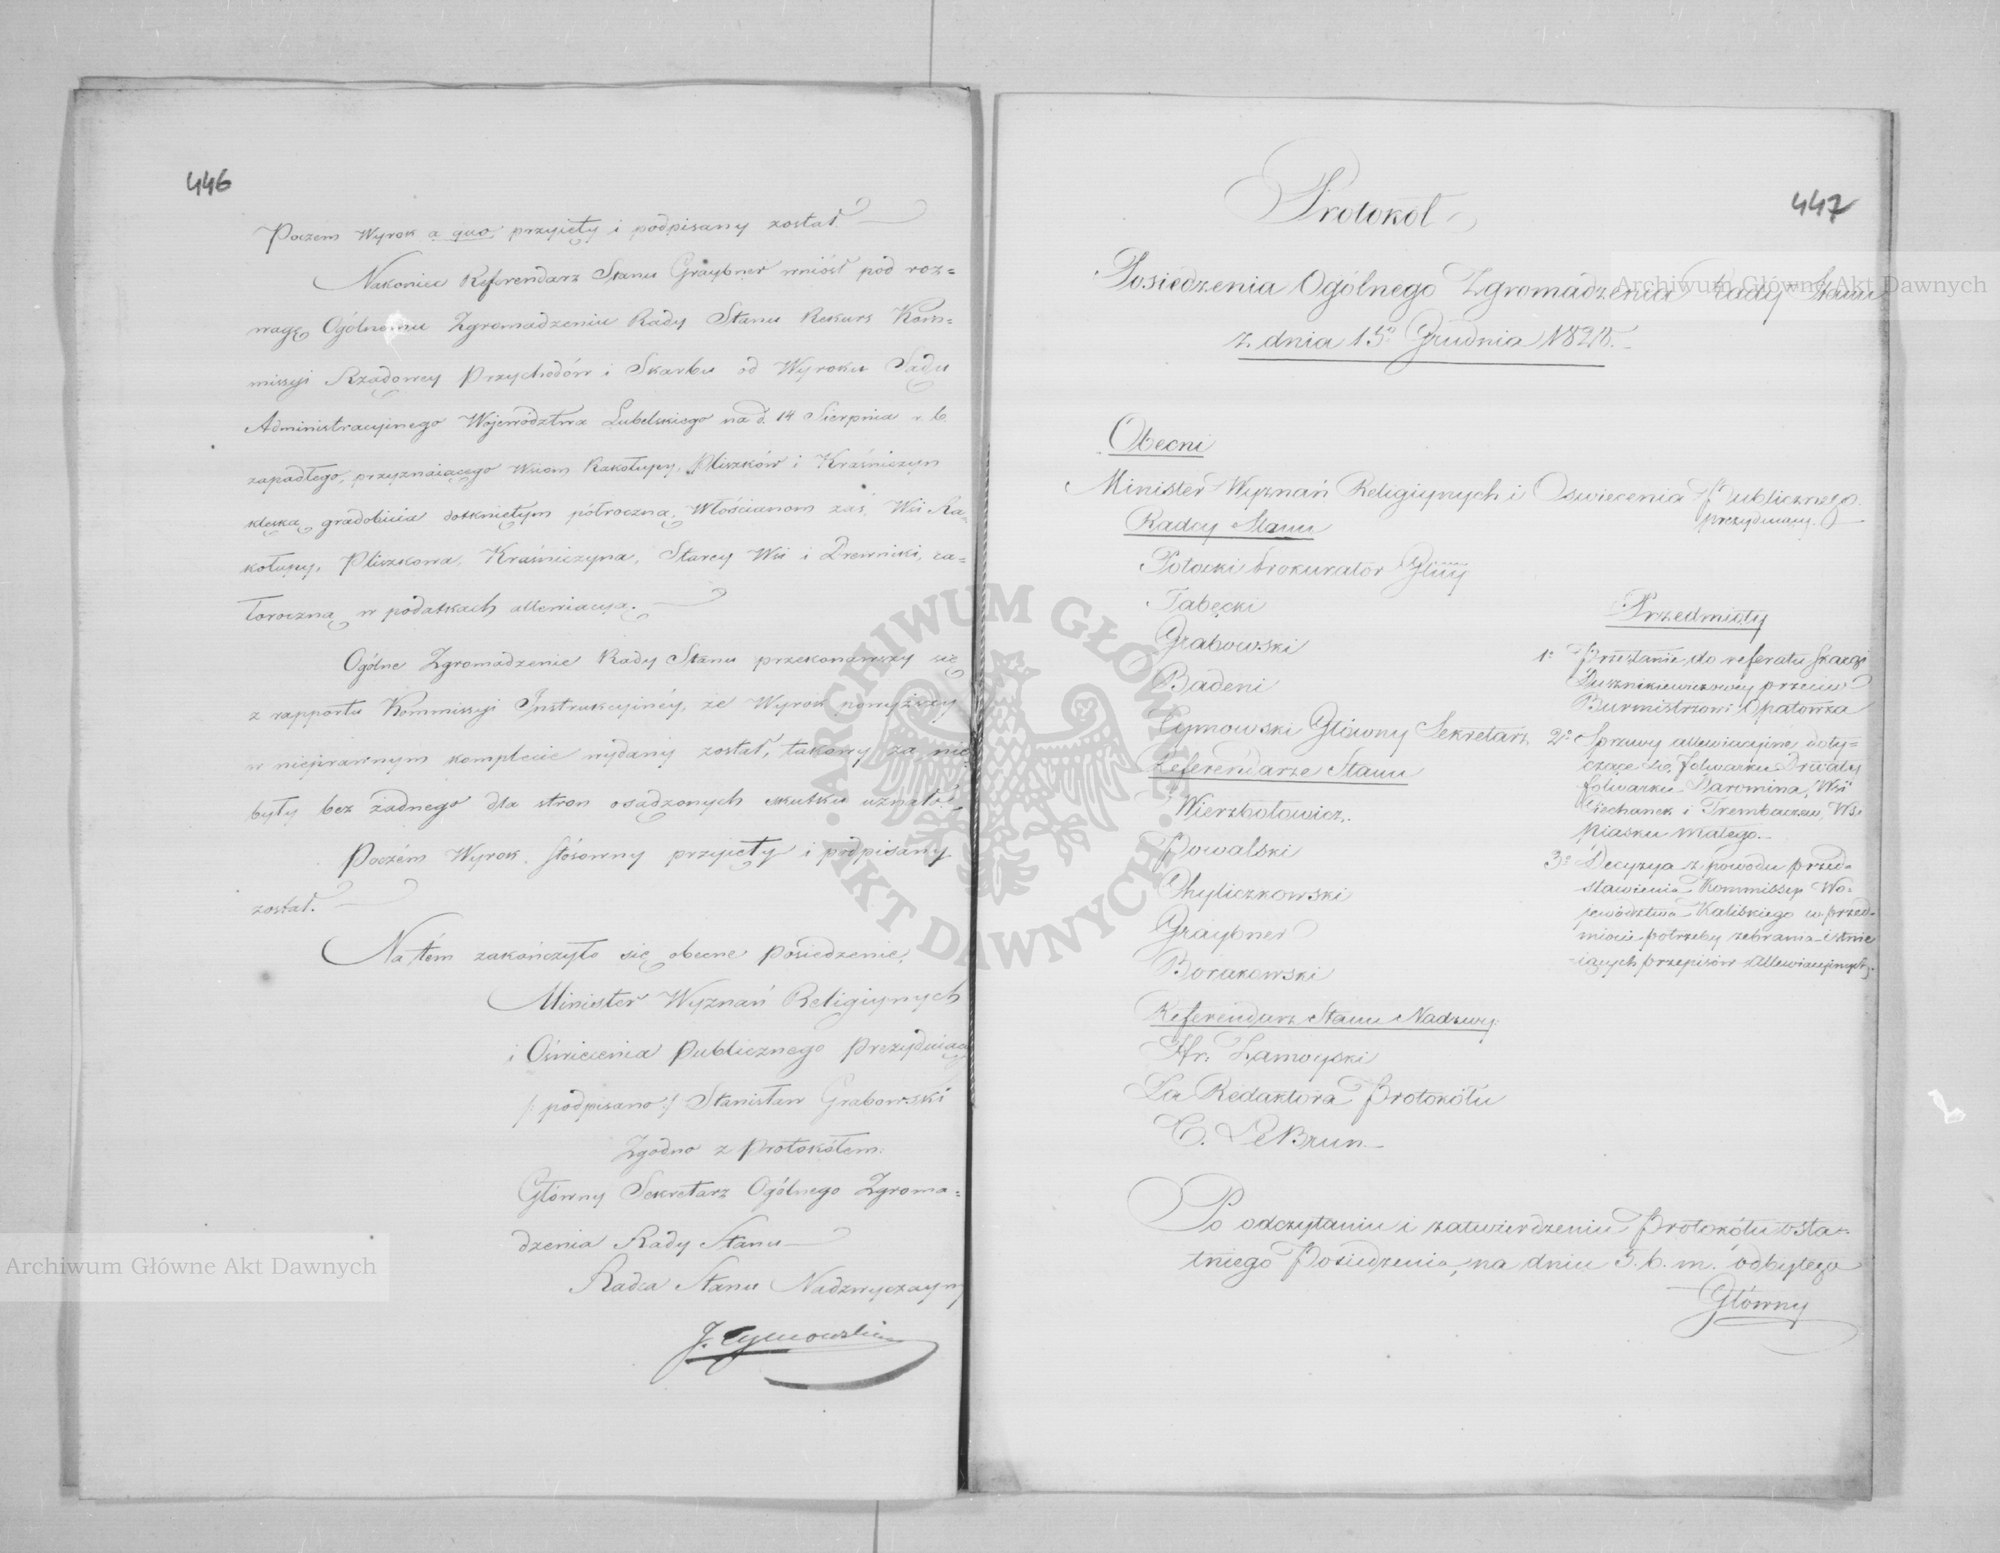 446
Poczem Wyrok a quo przyięty i podpisany został
Nakoniec Referendarz Stanu Graybner wniósł pod roz=
wagę Ogólnemu Zgromadzeniu Rady Stanu Rekurs Kom=
missyi Rządowey Przychodów i Skarbu od Wyroku Sądu
Administracyinego Województwa Lubelskiego na d. 14 Sierpnia r. b.
zapadłego, przyznaiącego Wsiom Rakołupy, Pliszków i Kraśniczyn
klęską gradobicia dotkniętym półroczną, Włościanom zaś, Wsi Ra=
kołupy, Pliszkowa, Kraśniczyna, Starey Wsi i Drewniki, ca=
łoroczną w podatkach allewiacyą.
Ogólne Zgromadzenie Rady Stanu przekonawszy się
z rapportu Kommissyi Instrukcyinéy, że Wyrok powyższy
w nieprawnym komplecie wydany został, takowy za nie=
były bez żadnego dla stron osądzonych skutku uznało.
Poczém Wyrok stósowny przyięty i podpisany
został.
Na tém zakończyło się obecne Posiedzenie.
Minister Wyznań Religiynych
i Oświecenia Publicznego Prezyduiący
/: podpisano :/ Stanisław Grabowski
Zgodno z Protokółem.
Główny Sekretarz Ogólnego Zgroma=
dzenia Rady Stanu
Radca Stanu Nadzwyczayny
J. Tymowski
447
Protokoł
Posiedzenia Ogólnego Zgromadzenia Rady Stanu
z dnia 15º Grudnia 1828.
Obecni
Minister Wyznań Religiynych i Oswiecenia Publicznego
prezyduiący.
Radcy Stanu
Potocki Prokurator Glny
Tabęcki
Grabowski
Badeni
Tymowski Główny Sekretarz.
Referendarze Stanu
Wierzbołowicz.
Powalski
Chyliczkowski
Graybner
Borakowski
Referendarz Stanu Nadzwy:
Hr. Zamoyski
Za Redaktora Protokółu
C. Le Brun
Przedmioty
1º Przesłanie do referatu skargi
przeciw
Burmistrzowi Opatówka
2º Sprawy allewiacyine doty=
czące się, folwarku Drwały
folwarku Daromina, Wsi
Ciechanek i Trembaczew, Wsi
Piasku małego.
3º Decyzya z powodu przed=
stawienia Kommissyi Wo=
jewództwa Kaliskiego w przed=
miocie potrzeby zebrania istnie
=iących przepisów allewiacyinych.
Po odczytaniu i zatwierdzeniu Protokółu osta=
tniego Posiedzenia, na dniu 5. b. m. odbytego
Główny
Archiwum Główne Akt Dawnych
Archiwum Główne Akt Dawnych
ARCHIWUM GŁÓWNE · AKT DAWNYCH ·